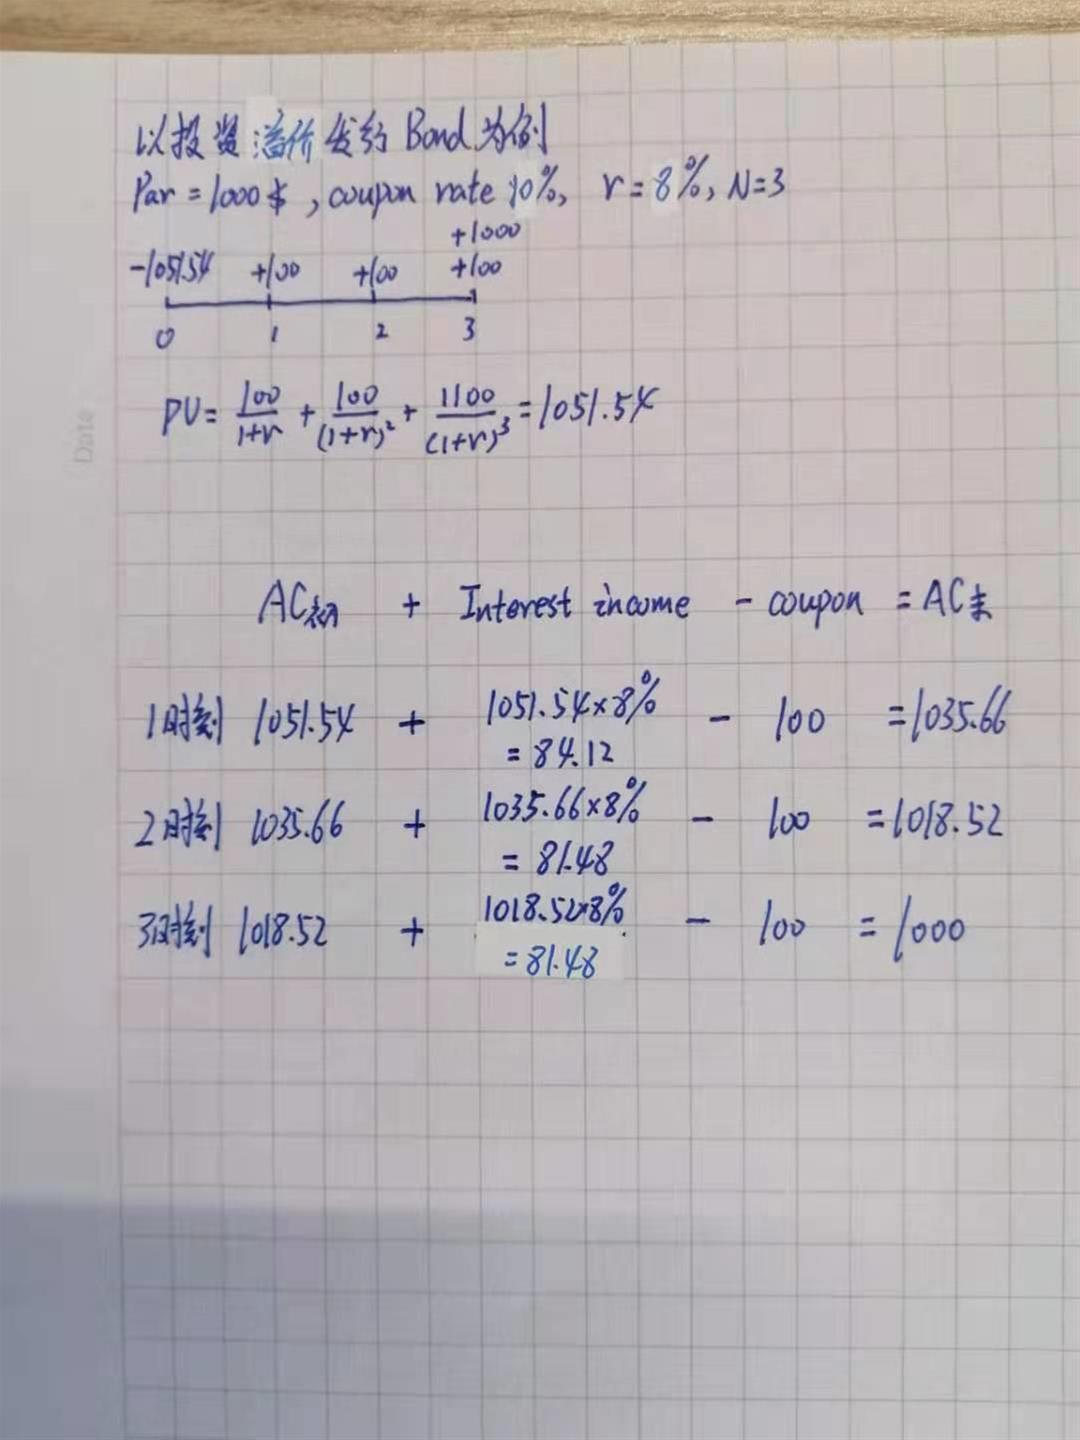 以投资溢价发行 Bond 为例
Par = 1000$, coupon rate 10%, r = 8%, N=3
+1000
-1051.54 +100 +100 +100
0 1 2 3
PV = 100/(1+r) + 100/(1+r)² + 1100/(1+r)³ = 1051.54
Date
AC初 + Interest income - coupon = AC末
1时刻 1051.54 + 1051.54×8% - 100 = 1035.66
= 84.12
2时刻 1035.66 + 1035.66×8% - 100 = 1018.52
= 81.48
3时刻 1018.52 + 1018.52×8% - 100 = 1000
= 81.48